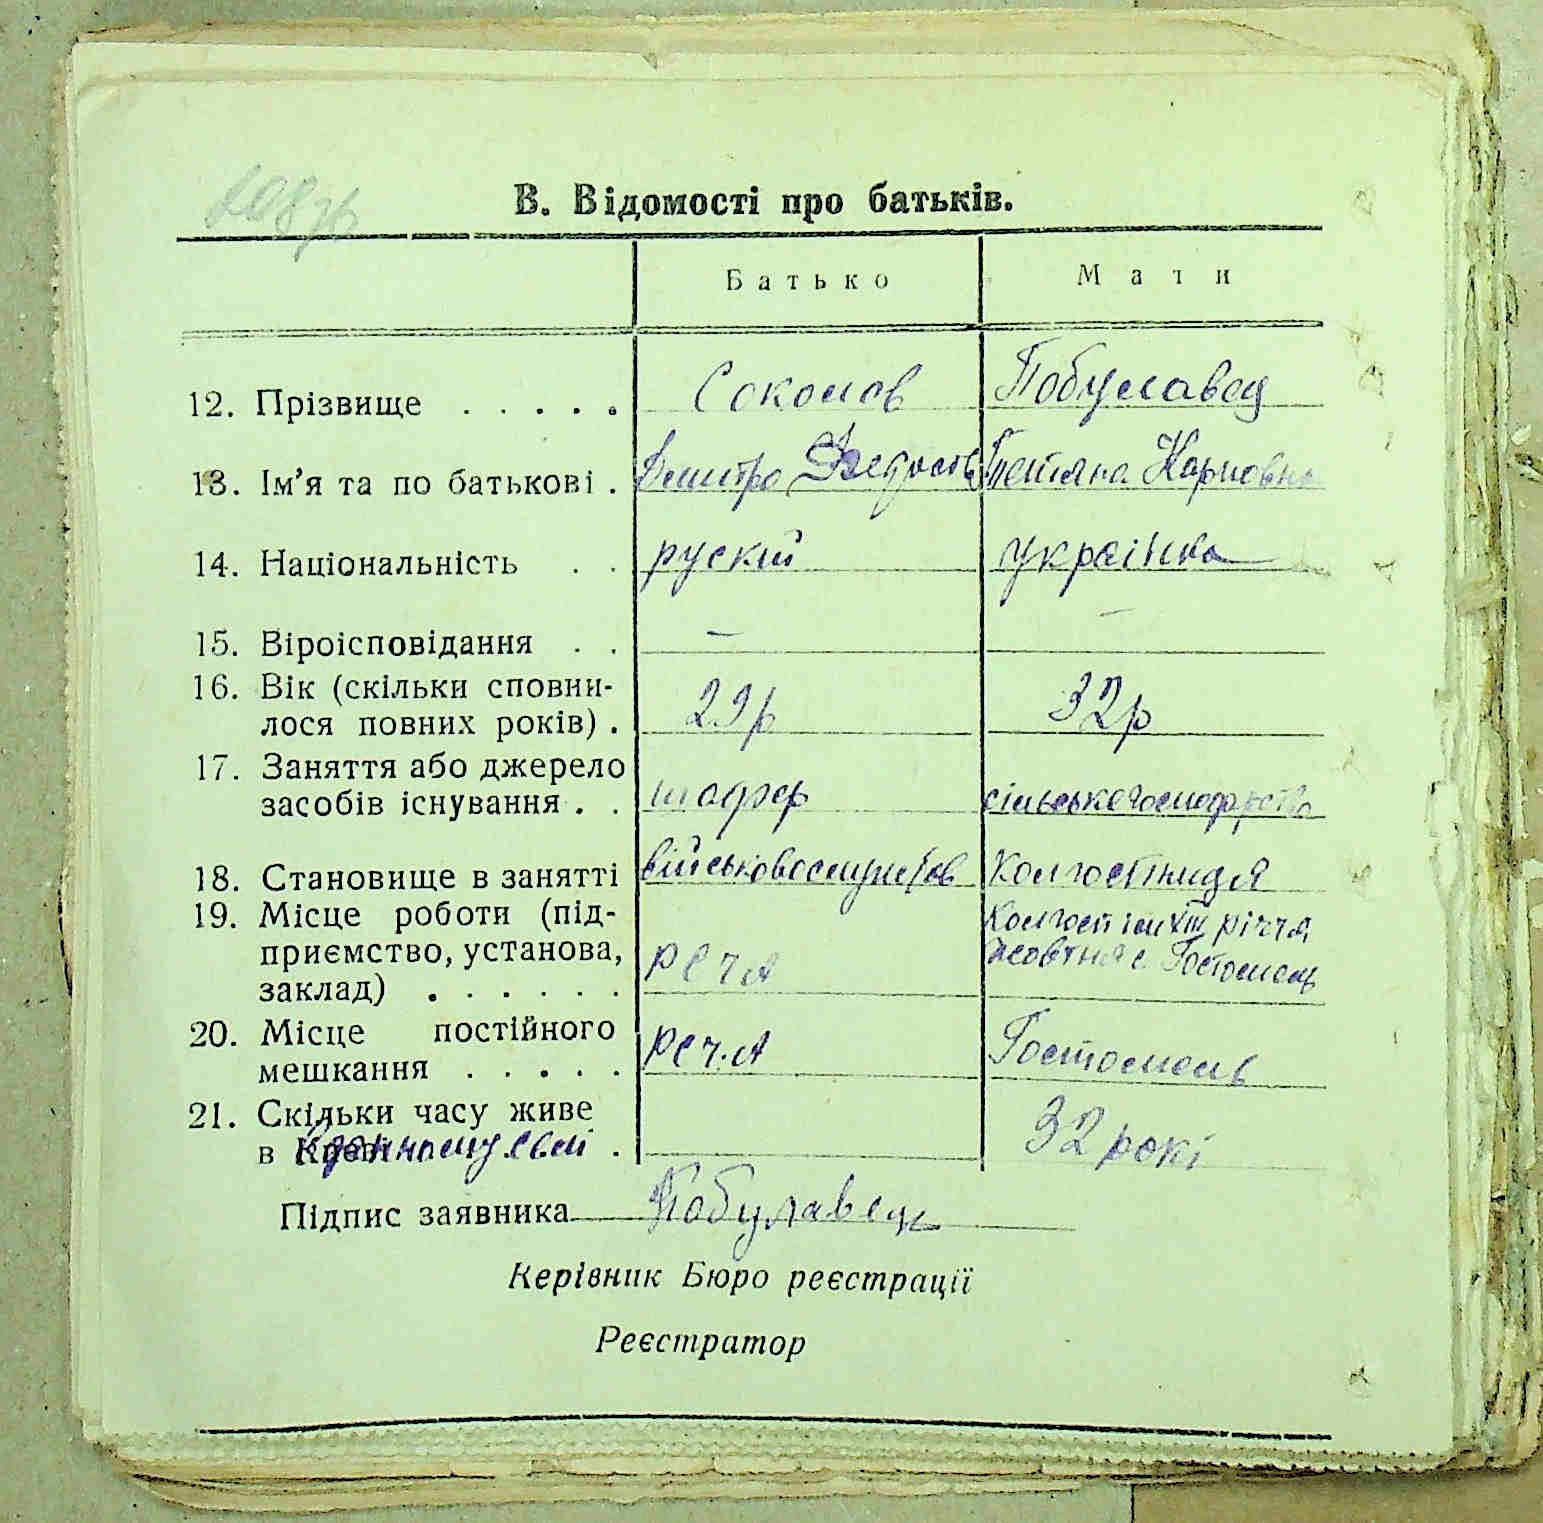 В. Відомості про батьків.
Батько Мати
12. Прізвище . . . . . Соколов Побулавец
13. Ім’я та по батькові . Дмитро Федосов Тетяна Карповна
14. Національність . . рускій украінка
15. Віроісповідання . . — —
16. Вік (скільки сповни-
лося повних років) . 29р 32р
17. Заняття або джерело
засобів існування . . шофер сільськегосподарство
18. Становище в занятті військовослужбов Колгостниця
19. Місце роботи (під- Колгосп ім XIII річчя
приємство, установа, РСЧА жовтня с. Гостомель
заклад) . . . . . .
20. Місце постійного
мешкання . . . . . РСЧ.А Гостомель
21. Скільки часу живе
в данному селі . 32 рокі
Підпис заявника Побулавець
Керівник Бюро реєстрації
Реєстратор